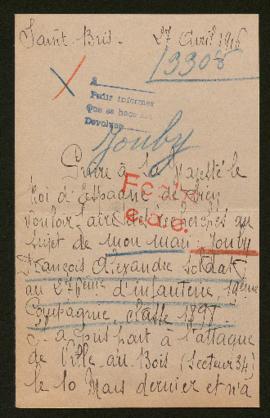 Saint-Bris. 27 Avril 1916
13308
A
Pedir informes
Que se hace
Devolver
Jouby
Prière à Sa Majesté le
Roi d'Espagne de bien
vouloir faire des recherches au
sujet de mon mari Jouby
François Alexandre soldat
au d'infanterie
Compagnie Classe 1897.
a pris part à l'attaque
de Ville au Bois (Secteur 34)
le 10 Mars dernier et n'a